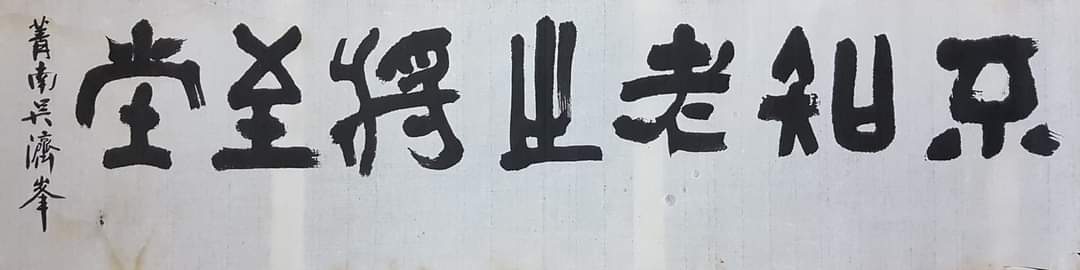 不知老之將至堂
菁南吳濟峯